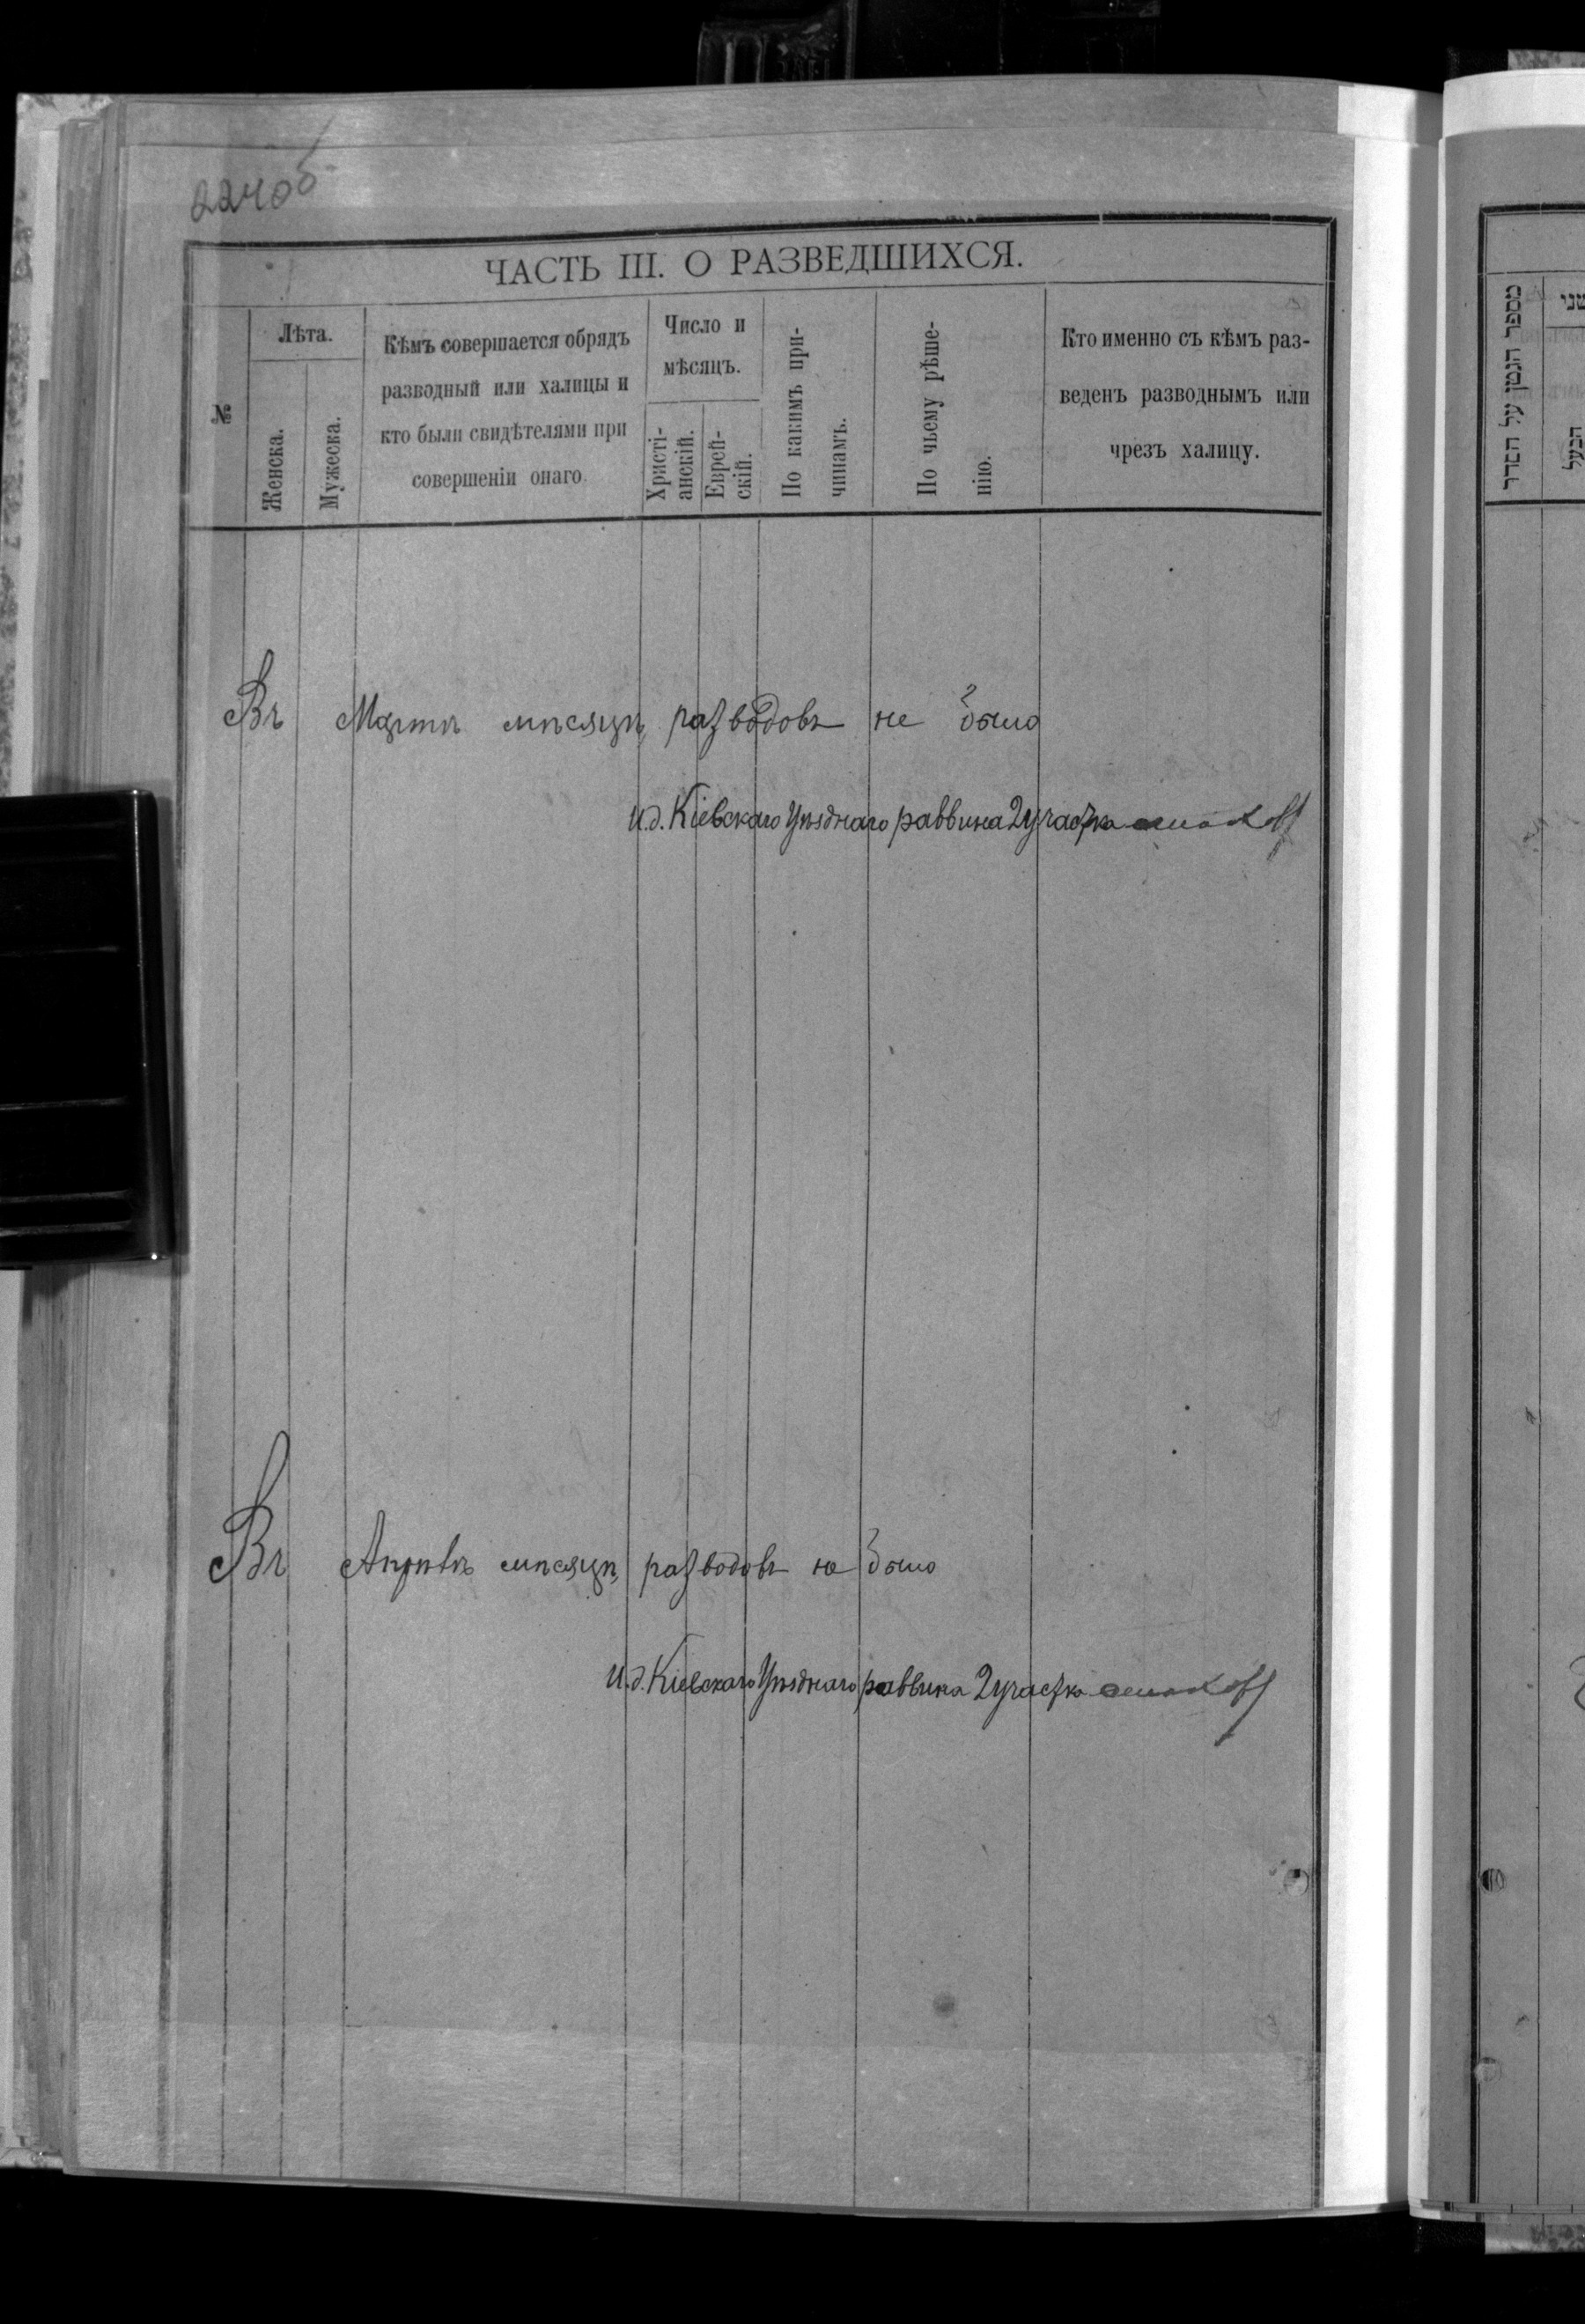 224об
ЧАСТЬ III. О РАЗВЕДШИХСЯ.
№
Лѣта.
Женска.
Мужеска.
Кѣмъ совершается обрядъ
разводный или халицы и
кто были свидѣтелями при
совершеніи онаго
Число и
мѣсяцъ.
Христі-
анскій.
Еврей-
скій.
По какимъ при-
чинамъ.
По чьему рѣше-
нію.
Кто именно съ кѣмъ раз-
веденъ разводнымъ или
чрезъ халицу.
Въ Мартѣ мѣсяцѣ разводовъ не было
И.д. Кіевскаго Уѣзднаго раввина 2 участка
Въ Апрѣлѣ мѣсяцѣ разводовъ не было
И.д. Кіевскаго Уѣзднаго раввина 2 участка
מספר הנטן על הסדר
שני
הבעל